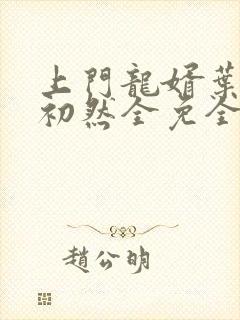 上門龍婿葉
初然全免全
趙公明